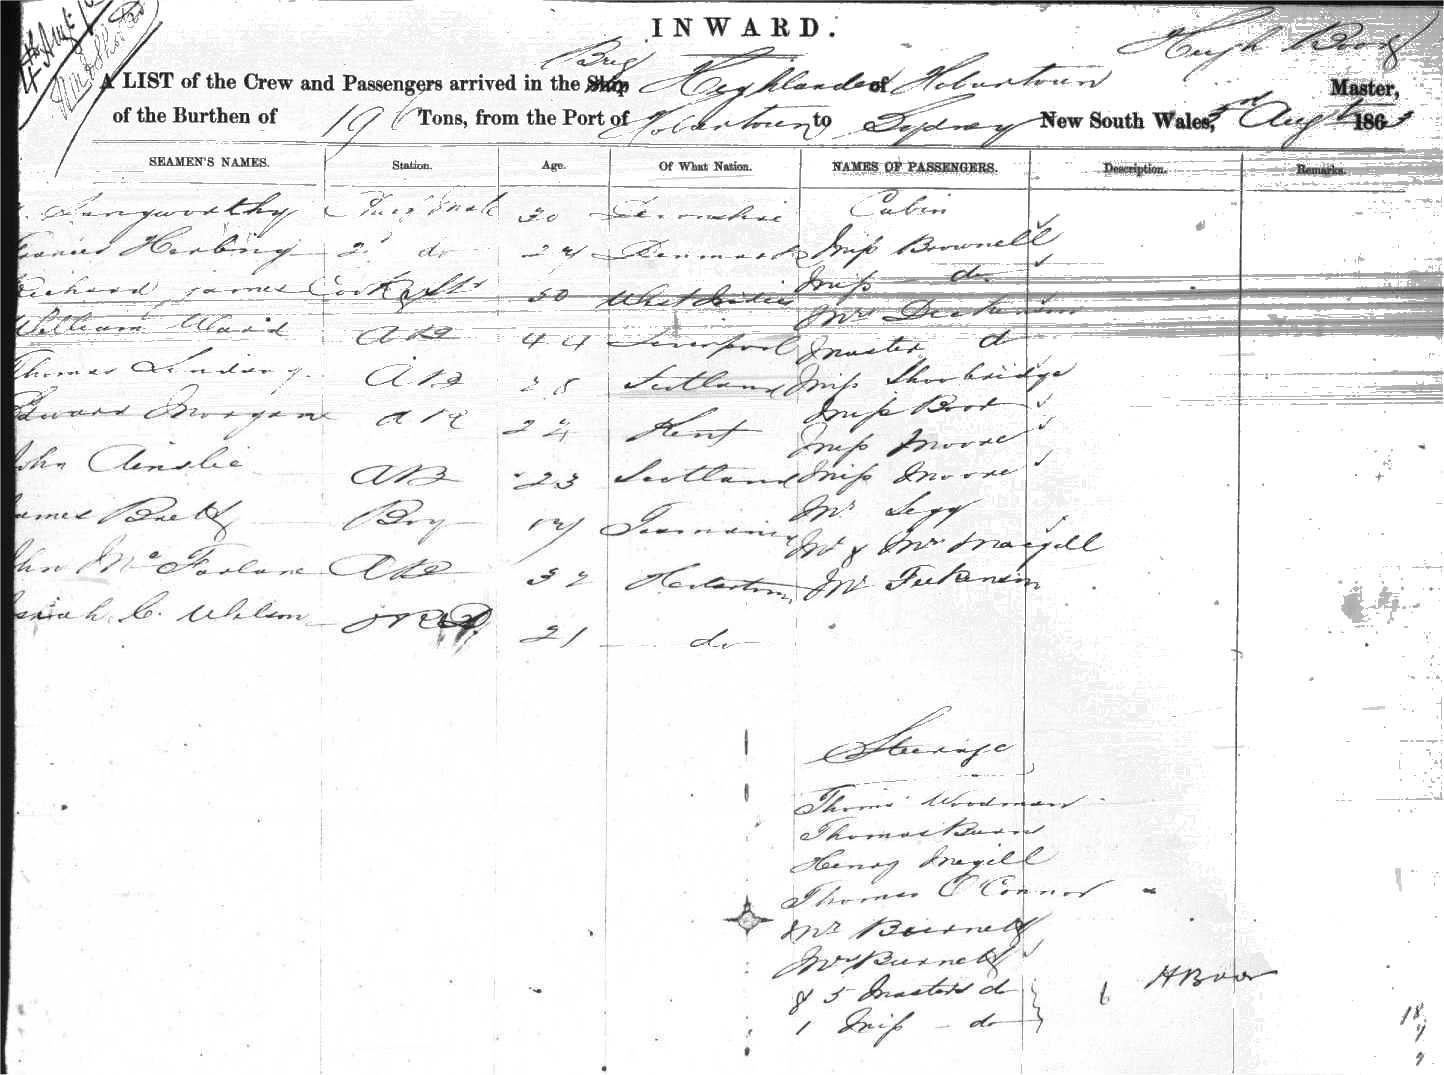 INWARD.
Hugh Boor
Brig
A LIST of the Crew and Passengers arrived in the Ship Highlander of Hobartown Master,
of the Burthen of 19 Tons, from the Port of Hobartown to Sydney New South Wales, 3rd Augt 1863
SEAMEN'S NAMES. Station. Age. Of What Nation. NAMES OF PASSENGERS. Description. Remarks.
Langworthy Chief Mate 30 Devonshire Cabin
Herbing 2d do 24 Denmark Miss Brownell
Richard James Cook & Std 50 West Indies Miss do
William Ward AB 44 Liverpool Mrs Dickenson
Master do
Thomas Lindsay AB 28 Scotland Miss Shoobridge
Edward Morgan AB 24 Kent Miss Boor
Miss Moore
John Ainslie AB 23 Scotland Miss Moore
James Brett Boy 17 Tasmania Mr Legg
Mr & Mrs Macgill
John McFarlane AB 32 Hobartown Mr Dickenson
C. Wilson 21 do
Steerage
Thoms Woodman
Thomas Burn
Henry Megill
Thomas O'Connor
Mr Burnett
Mrs Burnett
& 5 Masters do 6 H Boor
1 Miss do
18